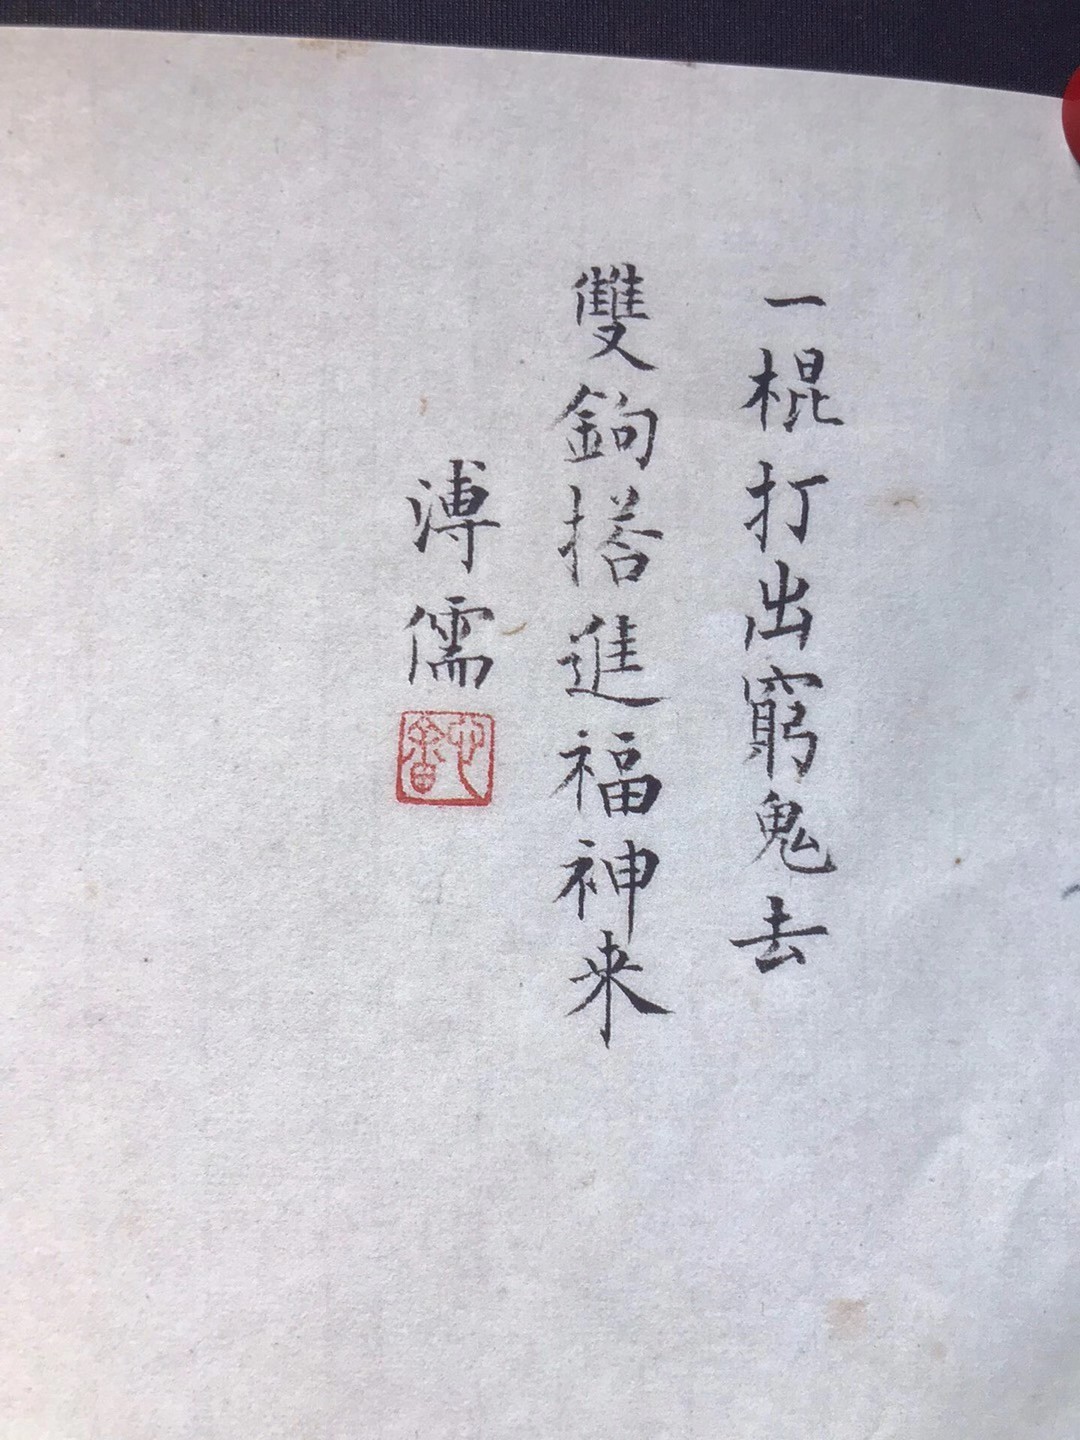 一棍打出窮鬼去
雙鉤搭進福神来
溥儒
心畬